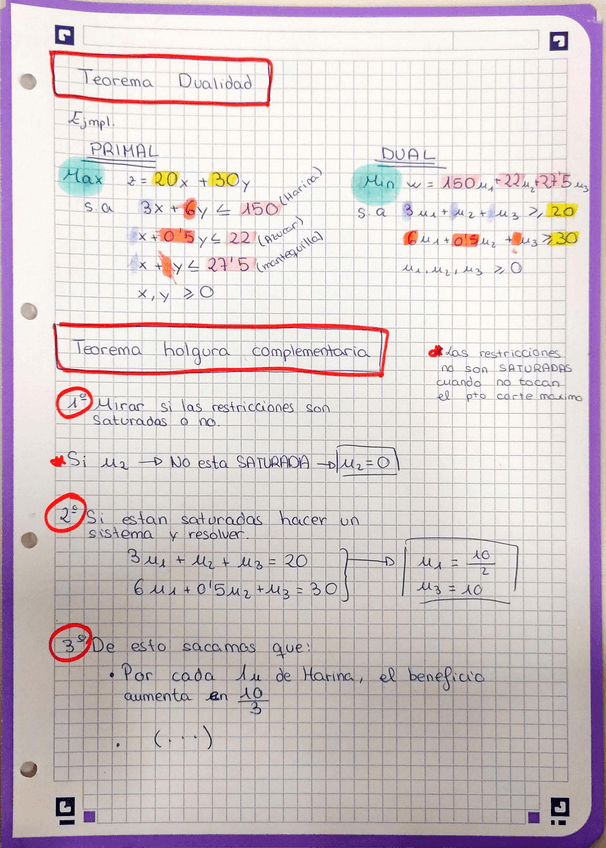 Teorema Dualidad
Ejmpl.
PRIMAL
Max z = 20x + 30y
s.a 3x + 6y ≤ 150 (Harina)
x + 0'5y ≤ 22 (Azucar)
x + y ≤ 27'5 (mantequilla)
x, y ≥ 0
DUAL
Min w = 150μ1 + 22μ2 + 27'5μ3
s.a 3μ1 + μ2 + μ3 ≥ 20
6μ1 + 0'5μ2 + μ3 ≥ 30
μ1, μ2, μ3 ≥ 0
Teorema holgura complementaria
* Las restricciones
no son SATURADAS
cuando no tocan
el pto corte maximo
1º Mirar si las restricciones son
saturadas o no.
* Si μ2 → No esta SATURADA → μ2 = 0
2º Si estan saturadas hacer un
sistema y resolver.
3μ1 + μ2 + μ3 = 20
6μ1 + 0'5μ2 + μ3 = 30
→ μ1 = 10/2
μ3 = 10
3º De esto sacamos que:
• Por cada 1u de Harina, el beneficio
aumenta en 10/3
• (...)